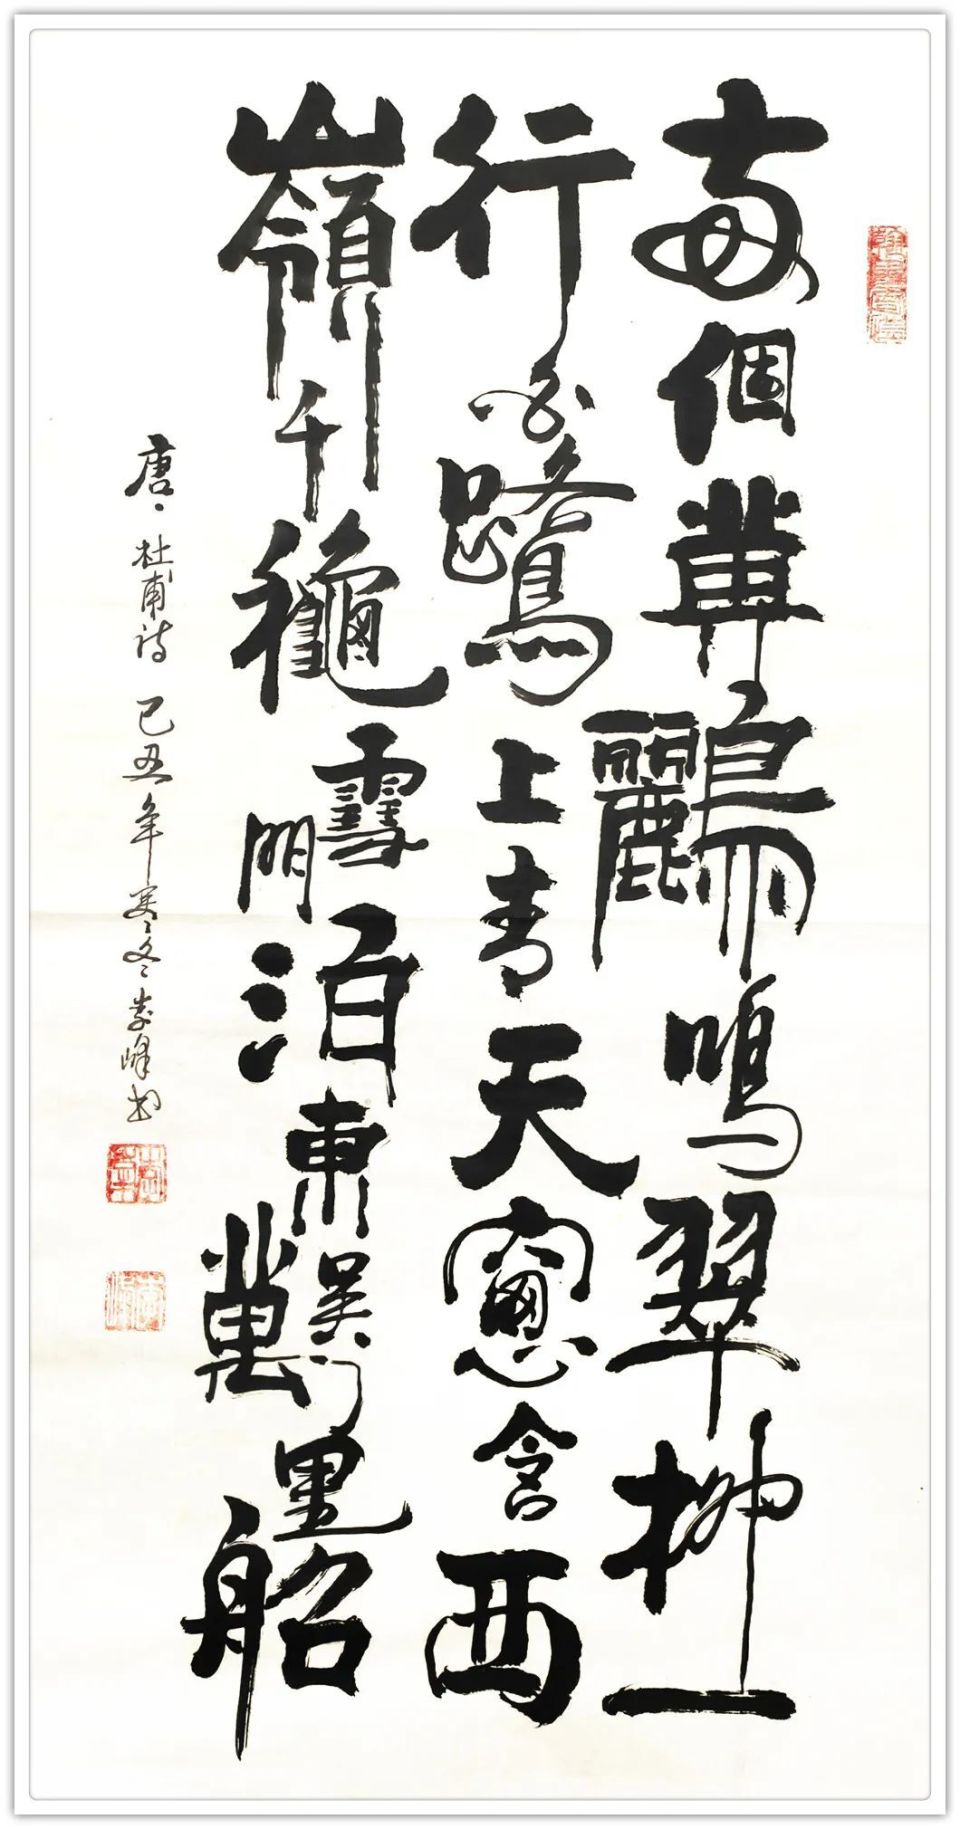 两個黄鸝鳴翠柳一
行白鷺上青天窻含西
嶺千龝雪門泊東吴萬里船
唐杜甫诗 己丑年寒冬 峰书